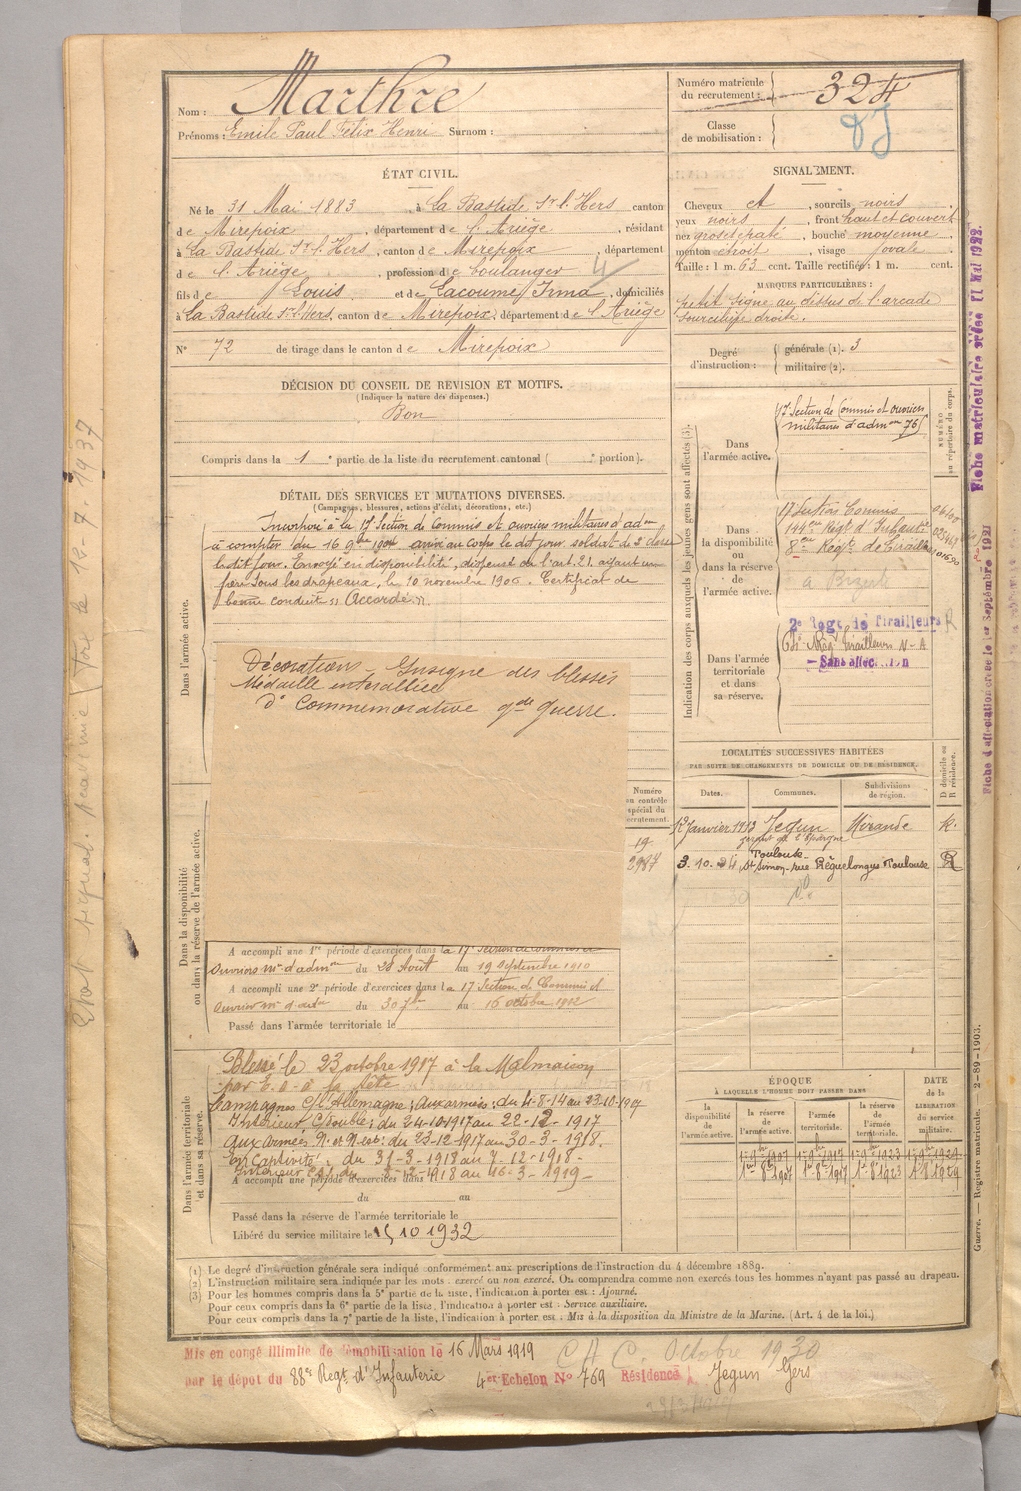 Nom : Marthre
Prénoms : Emile Paul Félix Henri Surnom :
Numéro matricule du recrutement : 324
Classe de mobilisation :
ÉTAT CIVIL.
Né le 31 Mai 1883, à La Bastide Sr l. Hers, canton
de Mirepoix, département de l'Ariège, résidant
à La Bastide Sr l. Hers, canton de Mirepoix, département
de l'Ariège, profession de boulanger
fils de Louis et de Lacoume Irma, domiciliés
à La Bastide Sr l. Hers, canton de Mirepoix, département de l'Ariège
N° 72 de tirage dans le canton de Mirepoix
SIGNALEMENT.
Cheveux et, sourcils noirs,
yeux noirs, front haut et couvert
nez gros et paté, bouche moyenne,
menton étroit, visage ovale.
Taille : 1 m. 63 cent. Taille rectifiée : 1 m. cent.
MARQUES PARTICULIÈRES :
petit signe au dessus de l'arcade
sourcilière droite.
Degré d'instruction : générale (1). 3
militaire (2).
DÉCISION DU CONSEIL DE REVISION ET MOTIFS.
(Indiquer la nature des dispenses.)
Bon
Compris dans la 1e partie de la liste du recrutement cantonal ( e portion).
DÉTAIL DES SERVICES ET MUTATIONS DIVERSES.
(Campagnes, blessures, actions d'éclat, décorations, etc.)
Dans l'armée active.
Incorporé à la 17e Section de Commis et ouvriers militaires d'adm on
à compter du 16 9bre 1904 arrivé au corps le dit jour, soldat de 2e classe
le dit jour. Envoyé en disponibilité, dispensé de l'art. 21, ayant un
frère sous les drapeaux, le 10 novembre 1906. Certificat de
bonne conduite "Accordé".
Décorations - Insigne des blessés
Médaille interalliée
d° Commemorative gde guerre.
Dans la disponibilité ou dans la réserve de l'armée active.
A accompli une 1re période d'exercices dans la 17e Section de Commis et
Ouvriers m res d'adm on du 28 Août au 19 Septembre 1910
A accompli une 2e période d'exercices dans la 17 Section de Commis et
Ouvriers m res d'adm du 30 7bre au 16 octobre 1912
Passé dans l'armée territoriale le
Dans l'armée territoriale et dans sa réserve.
Blessé le 23 octobre 1917 à la Malmaison
par E. o. à la tête
Campagnes C/ l'Allemagne ; aux armées : du 4-8-14 au 23-10-1917
Intérieur C/ double : du 24-10-1917 au 22-12-1917
aux armées N. et N-est : du 23-12-1917 au 30-3-1918.
En Captivité : du 31-3-1918 au 7-12-1918-
A accompli une période d'exercices dans
du au
Passé dans la réserve de l'armée territoriale le
Libéré du service militaire le 15 10 1932
Numéro au contrôle spécial du recrutement.
19
2987
Indication des corps auxquels les jeunes gens sont affectés (3).
NUMÉRO au répertoire du corps.
Dans l'armée active.
17 Section de Commis et ouvriers
militaires d'adm on 76
Dans la disponibilité ou dans la réserve de l'armée active.
17 Section Commis
144me Régt d'Infanterie
8me Régt de Tirailleurs
à Bizerte
Dans l'armée territoriale et dans sa réserve.
2e Regt de Tirailleurs
Tirailleurs N-A
Sans affectation
LOCALITÉS SUCCESSIVES HABITÉES
PAR SUITE DE CHANGEMENTS DE DOMICILE OU DE RÉSIDENCE.
Dates. Communes. Subdivisions de région. D domicile ou R résidence.
12 Janvier 1913 Jegun Mirande R.
gérant de l'Epargne
3. 10. 24 Toulouse
St Simon-rue Toulouse R
ÉPOQUE
À LAQUELLE L'HOMME DOIT PASSER DANS
la disponibilité de l'armée active. la réserve de l'armée active. l'armée territoriale. la réserve de l'armée territoriale.
DATE de la LIBÉRATION du service militaire.
(1) Le degré d'instruction générale sera indiqué conformément aux prescriptions de l'instruction du 4 décembre 1889.
(2) L'instruction militaire sera indiquée par les mots : exercé ou non exercé. On comprendra comme non exercés tous les hommes n'ayant pas passé au drapeau.
(3) Pour les hommes compris dans la 5e partie de la liste, l'indication à porter est : Ajourné.
Pour ceux compris dans la 6e partie de la liste, l'indication à porter est : Service auxiliaire.
Pour ceux compris dans la 7e partie de la liste, l'indication à porter est : Mis à la disposition du Ministre de la Marine. (Art. 4 de la loi.)
Mis en congé illimité de démobilisation le 16 Mars 1919
par le dépôt du 88e Regt d'Infanterie 4er Echelon N° 769 Résidence à Jegun Gers
C A C. Octobre 1930
Fiche matriculaire créée 11 Mai 1922.
Fiche d'affectation créée le 1er Septembre 1921
Guerre. — Registre matricule. 2-89-1903.